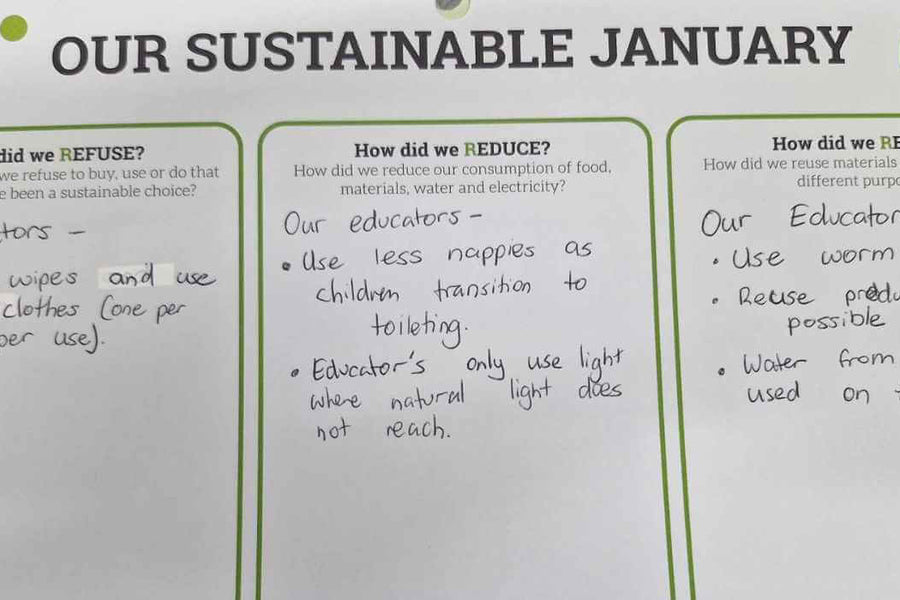 OUR SUSTAINABLE JANUARY
did we REFUSE?
we refuse to buy, use or do that
been a sustainable choice?
wipes and use
clothes (one per
per use).
How did we REDUCE?
How did we reduce our consumption of food,
materials, water and electricity?
Our educators -
• Use less nappies as
children transition to
toileting.
• Educator's only use light
where natural light does
not reach.
How did we
How did we reuse materials
different
Our
• Use worm
• Reuse
possible
• Water from
used on